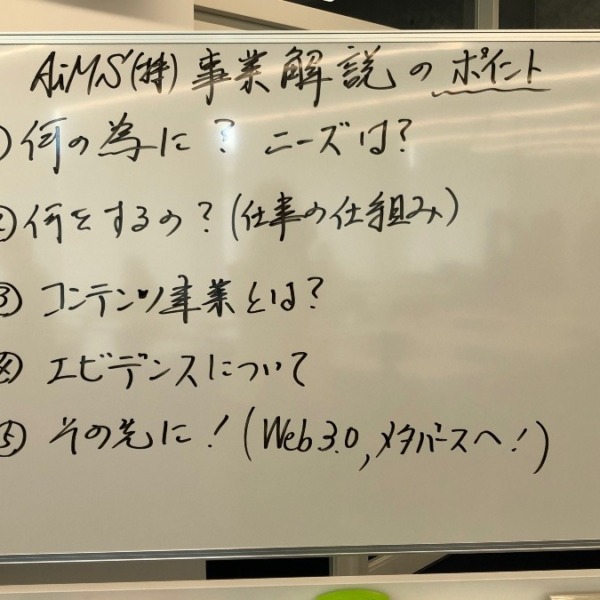 AiMS(特)事業解説のポイント
①何の為に? ニーズは?
②何をするの?(仕事の仕組み)
③コンテンツ事業とは?
④エビデンスについて
⑤その先に!(Web3.0,メタバースへ!)